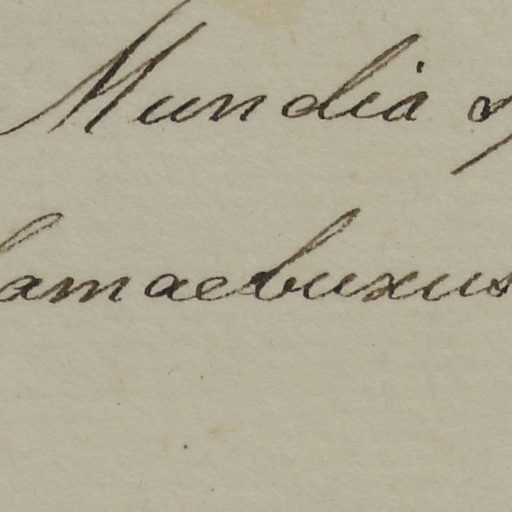 Mundia
hamaebuxus